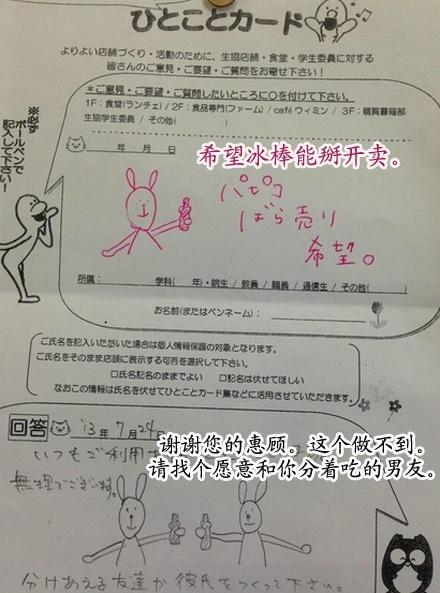 ひとことカード
よりよい店舗づくり・活動のために、生協店舗・食堂・学生委員に対する
皆さんのご意見・ご要望・ご質問をお寄せ下さい！
※必ず
ボールペンで
記入して下さい！
＊ご意見・ご要望・ご質問したいところに○を付けて下さい。
1F：食堂(ランチェ) / 2F：食品専門(ファーム) / café ウィミン / 3F：購買書籍部
生協学生委員 / その他( )
年 月 日
希望冰棒能掰开卖。
パピコ
ばら売り
希望。
所属： 学科( 年)・院生 / 教員 / 職員 / 通信生 / その他( )
お名前(またはペンネーム)：
ご氏名を記入いただいた場合は個人情報保護の対象となります。
ご氏名をそのまま店頭に表示する可否を選択して下さい。
□氏名記名のままでよい □記名は伏せてほしい
なおこの情報は氏名を伏せてひとことカード集などに活用させていただきます。
回答
'13年7月24日
谢谢您的惠顾。这个做不到。
请找个愿意和你分着吃的男友。
いつもご利用
無理でございます。
分けあえる友達か彼氏をつくって下さい。